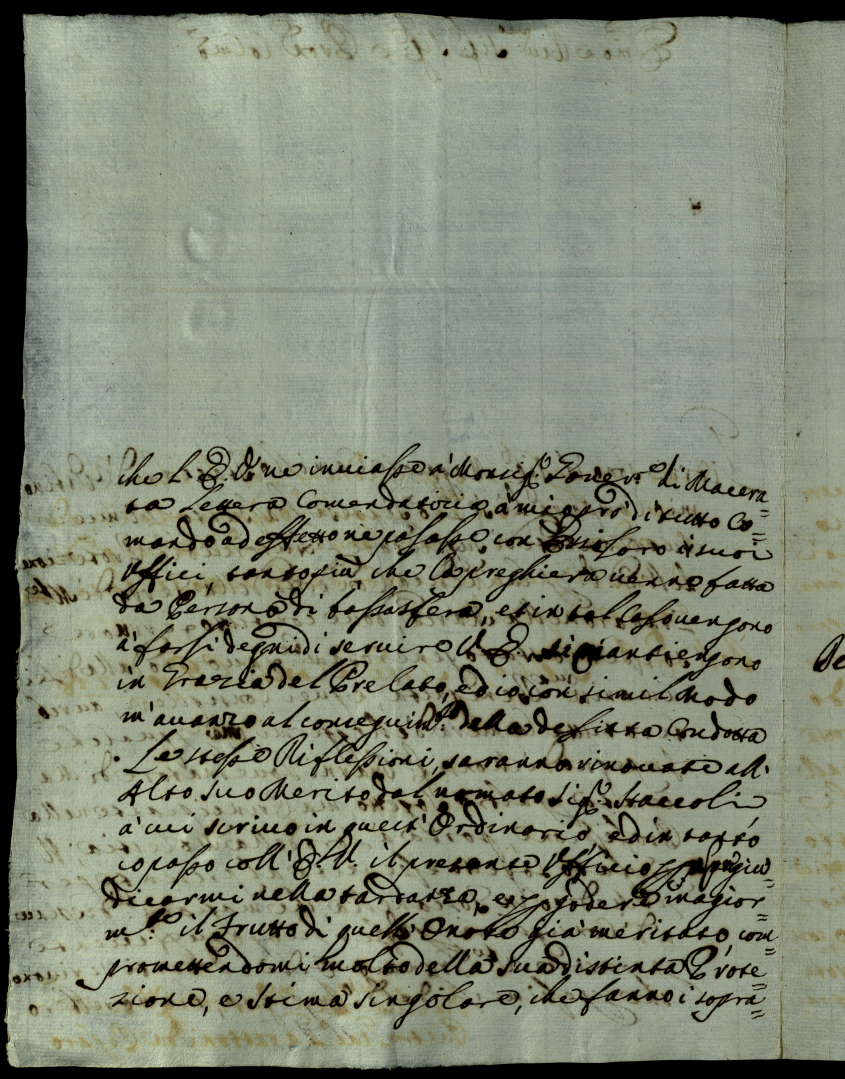 che l'E. V. ne inviasse à Monsig.e Gover.re di Macera=
ta Lettera Comendatoria à mio prò di tutto Co=
mando ad effetto ne pasasse con i suoi
Uffici, tanto più che la preghiera venne fatta
da Persona di bassa sfera, et in tal caso vengono
à farsi degni di servire V. E. si mantiengono
in Grazia del Prelato, ed io con simil Modo
m'avanzo al conseguim.to della Condotta
Le stesse Riflessioni, saranno rinovate all'
Alto suo Merito dal nomato Sig.e Staccoli
à cui scrivo in quest'Ordinario, ed in tanto
io passo coll'E. V. il presente Ufficio p non pregiu=
dicarmi nella tardanza, e p godere magior=
m.te il Frutto di quell'Onore già meritato, com=
promettendomi molto della sua distinta Prote=
zione, e Stima Singolare, che fanno i sopra=